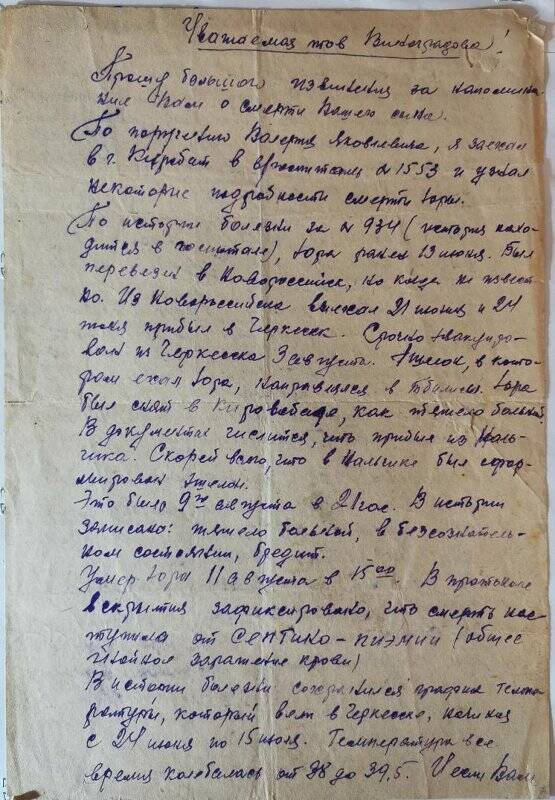 Уважаемая тов Виноградова!
Прошу большого извинения за напомина-
ние Вам о смерти Вашего сына.
По поручению Валерия Яковлевича, я заехал
в г. Кировабат в госпиталь №1553 и узнал
некоторые подробности смерти Юры.
По истории болезни за №934 (история нахо-
дится в госпитале), Юра ранен 13 июня. Был
перевезен в Новороссийск, но когда не извест-
но. Из Новороссийска выехал 21 июня и 24
июня прибыл в Черкесск. Срочно эвакуиро-
вали из Черкесска 3 августа. Эшелон, в кото-
ром ехал Юра, направлялся в Тбилиси. Юра
был снят в Кировабаде, как тяжело больной.
В документах числится, что прибыл из Наль-
чика. Скорей всего, что в Нальчике был сфор-
мирован эшелон.
Это было 9го августа в 21 час. В истории
записано: тяжело больной, в безсознатель-
ном состоянии, бредит.
Умер Юра 11 августа в 15 00. В протоколе
вскрытия зафиксировано, что смерть нас-
тупила от СЕПТИКО-ПИЭМИИ (общее
гнойное заражение крови)
В истории болезни сохранился график темпе-
ратуры, который вели в Черкесске, начиная
с 24 июня по 15 июля. Температура все
время колебалась от 38 до 39,5. И если Вам